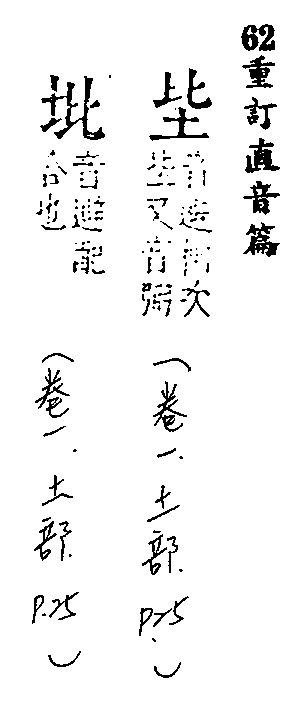 62重訂直音篇
坒
音避相次
坒又音弼
(卷一.土部.P.25)
音避配
合也
(卷一.土部.P.25)